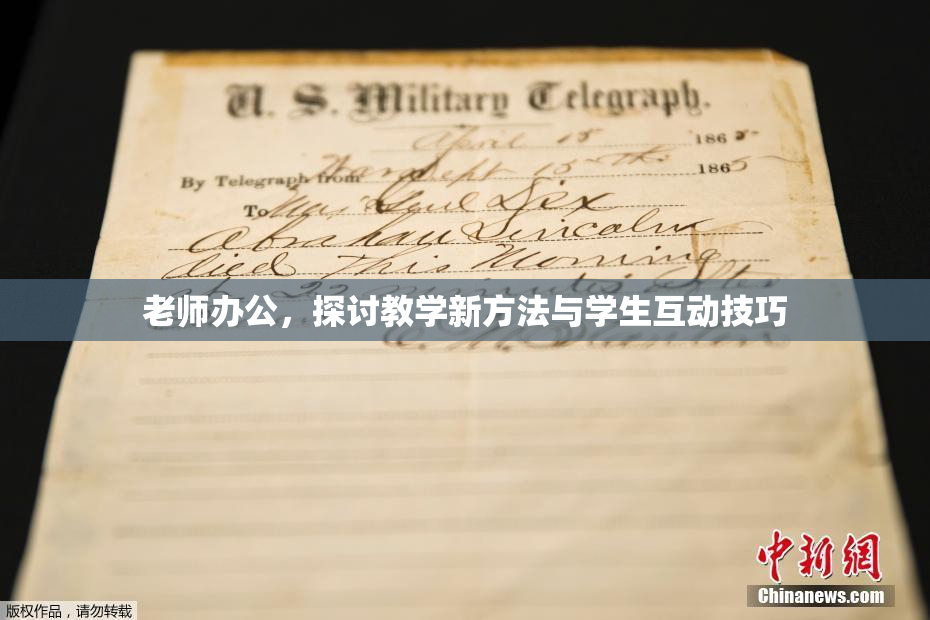 U. S. Military Telegraph.
April 15 1865
By Telegraph from Wash Sept 15th 1865
To Maj Genl Dix
Abraham Lincoln
died This Morning
at 22 minutes after
老师办公，探讨教学新方法与学生互动技巧
E. M. Stanton
中新网
Chinanews.com
版权作品，请勿转载